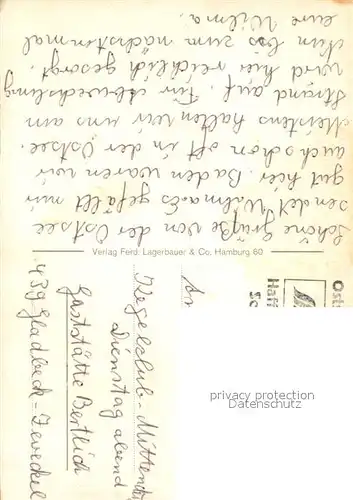 Schöne Grüße von der Ostsee
sendet Wilma. Es gefällt mir
gut hier. Baden waren wir
auch schon oft in der Ostsee.
Meistens halten wir uns am
Strand auf. Für Abwechslung
wird hier reichlich gesorgt.
Nun bis zum nächstenmal
eure Wilma.
Verlag Ferd. Lagerbauer & Co., Hamburg 60
An
Kegelclub-Mittendr
Dienstag abend
Gaststätte Bertlich
439 Gladbeck-Zweckel
Osts
Haff
privacy protection
Datenschutz